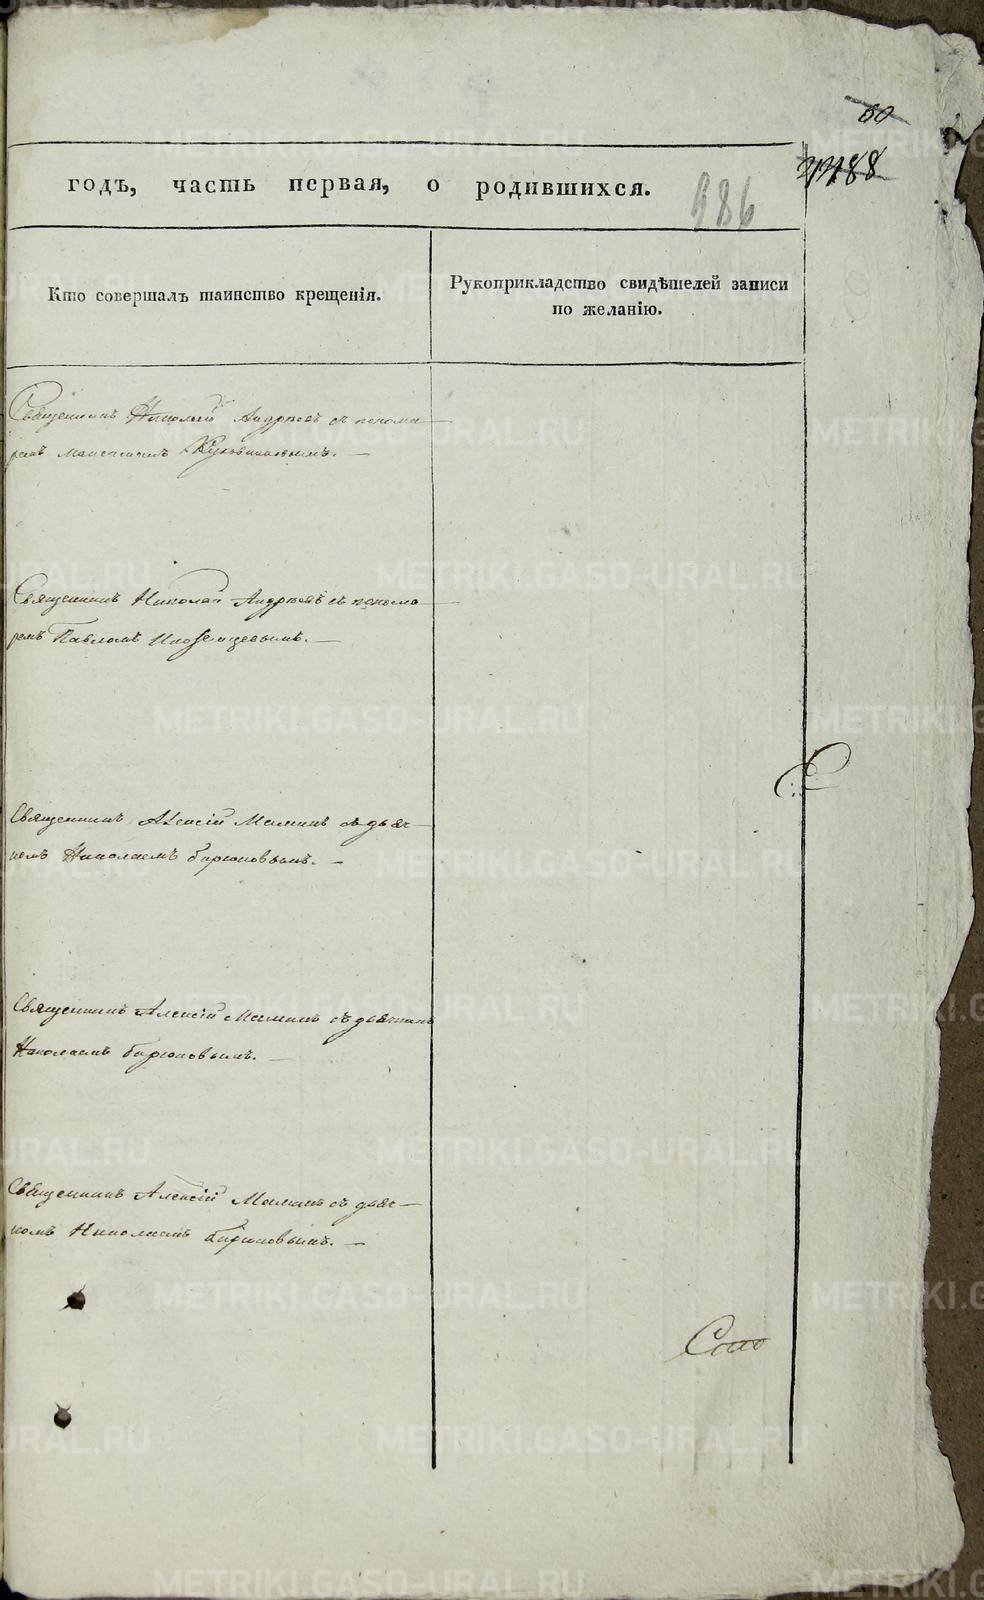 60
годъ, часть первая, о родившихся.
986
Кто совершалъ таинство крещенія.
Рукоприкладство свидѣтелей записи
по желанію.
Священникъ Николай Андреевъ съ понома-
ремъ
Священникъ Николай Андреевъ съ понома-
ремъ Павломъ Иноземцевымъ.
Священникъ Алексій Маминъ съ дьяч-
комъ Николаемъ Бирюковымъ.
Священникъ Алексій Маминъ съ дьячкомъ
Николаемъ Бирюковымъ.
Священникъ Алексій Маминъ съ дьяч-
комъ Николаемъ Бирюковымъ.
METRIKI.GASO-URAL.RU